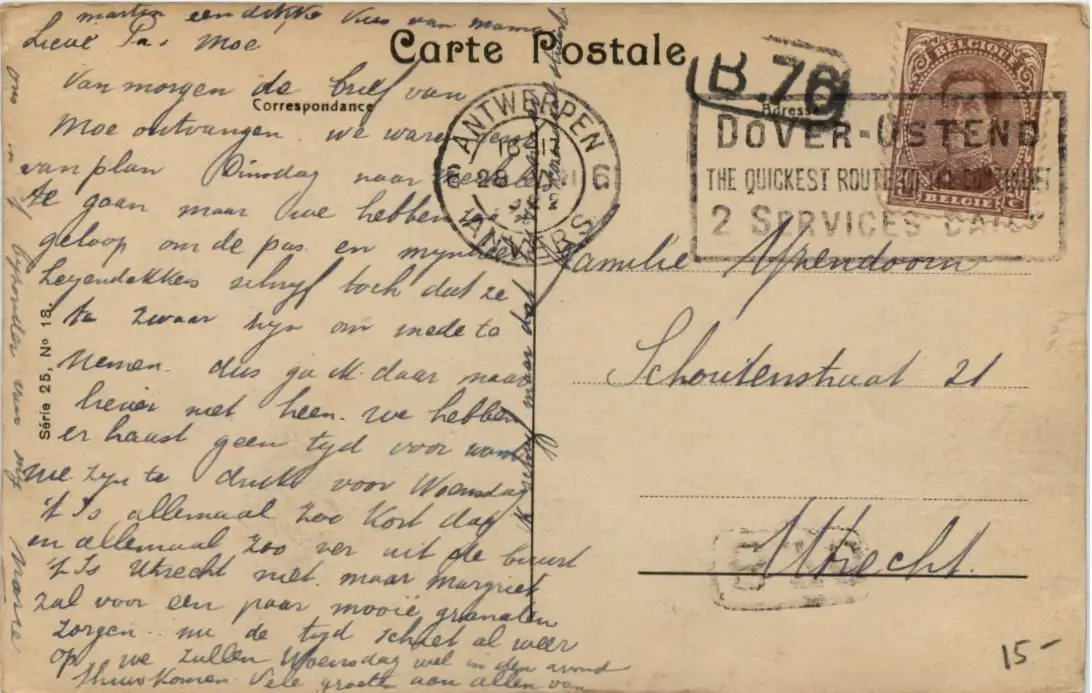 martin een dikke kus van mama
Lieve Pa, Moe
Carte Postale
Correspondance
Adresse
Van morgen de brief van
Moe ontvangen. we waren
van plan Dinsdag naar
te gaan maar we hebben
geloop om de pas. en mynheer
Leyendekkers schryf toch dat ze
te zwaar zyn om mede te
nemen. dus ga ik daar maar
liever niet heen. We hebben
er haast geen tyd voor want
we zyn te druk voor Woensdag
't Is allemaal zoo kort dag
en allemaal zoo ver uit de buurt
't Is Utrecht niet. maar Margriet
zal voor een paar mooie granaten
zorgen. nu de tyd schiet al weer
op we zullen Woensdag wel in den avond
thuis komen. Vele groeten aan allen van
ons en bijzonder van my
ik schryf maar dat
Série 25, Nº 18.
ANTWERPEN
6 28 6
ANVERS
B.76
DOVER-OSTEND
THE QUICKEST ROUTE TO THE CONTINENT
2 SERVICES DAILY
BELGIQUE
BELGIË
Familie Ypendoorn
Schoutenstraat 21
Utrecht.
15-